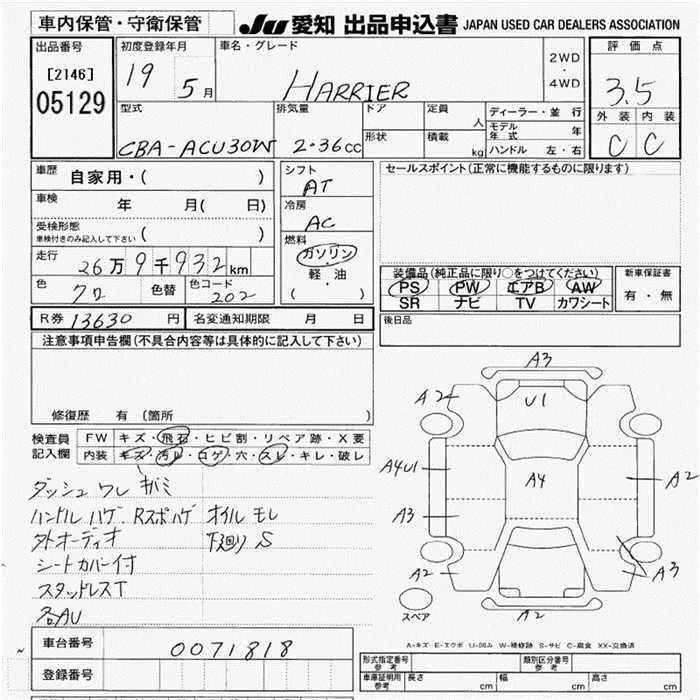 車内保管・守衛保管
JU 愛知 出品申込書 JAPAN USED CAR DEALERS ASSOCIATION
出品番号
[2146]
05129
初度登録年月
19 5月
車名・グレード
HARRIER
2WD
・
4WD
評価点
3.5
外装 内装
C C
型式
CBA-ACU30W
排気量
2.36cc
ドア
形状
定員
人
積載
kg
ディーラー・並行
モデル年式 年
ハンドル 左・右
車歴
自家用・( )
車検
年 月( 日)
受検形態
車検付きのみ記入して下さい ( )
走行
26万9千932km
色
クロ
色替
色コード
202
シフト
AT
冷房
AC
燃料
ガソリン
・
軽油
・
( )
セールスポイント(正常に機能するものに限ります)
装備品(純正品に限り○をつけてください)
PS PW エアB AW
SR ナビ TV カワシート
新車保証書
有・無
R券 13630 円
名変通知期限 月 日
後日品
注意事項申告欄(不具合内容等は具体的に記入して下さい)
修復歴 有 (箇所 )
検査員
記入欄
FW キズ・飛石・ヒビ割・リペア跡・X要
内装 キズ・汚レ・コゲ・穴・スレ・キレ・破レ
ダッシュ ワレ キバミ
ハンドル ハゲ Rスポハゲ オイル モレ
外オーディオ 下廻り S
シートカバー付
スタッドレスT
各AU
A3
A2
U1
A4U1
A4
A2
A3
A2
A3
A2
スペア
A-キズ E-エクボ U-凹み W-補修跡 S-サビ C-腐食 XX-交換済
車台番号
0071818
登録番号
形式指定番号
参考
類別区分番号
参考
車庫証明用
参考
長さ cm 幅 cm 高さ cm